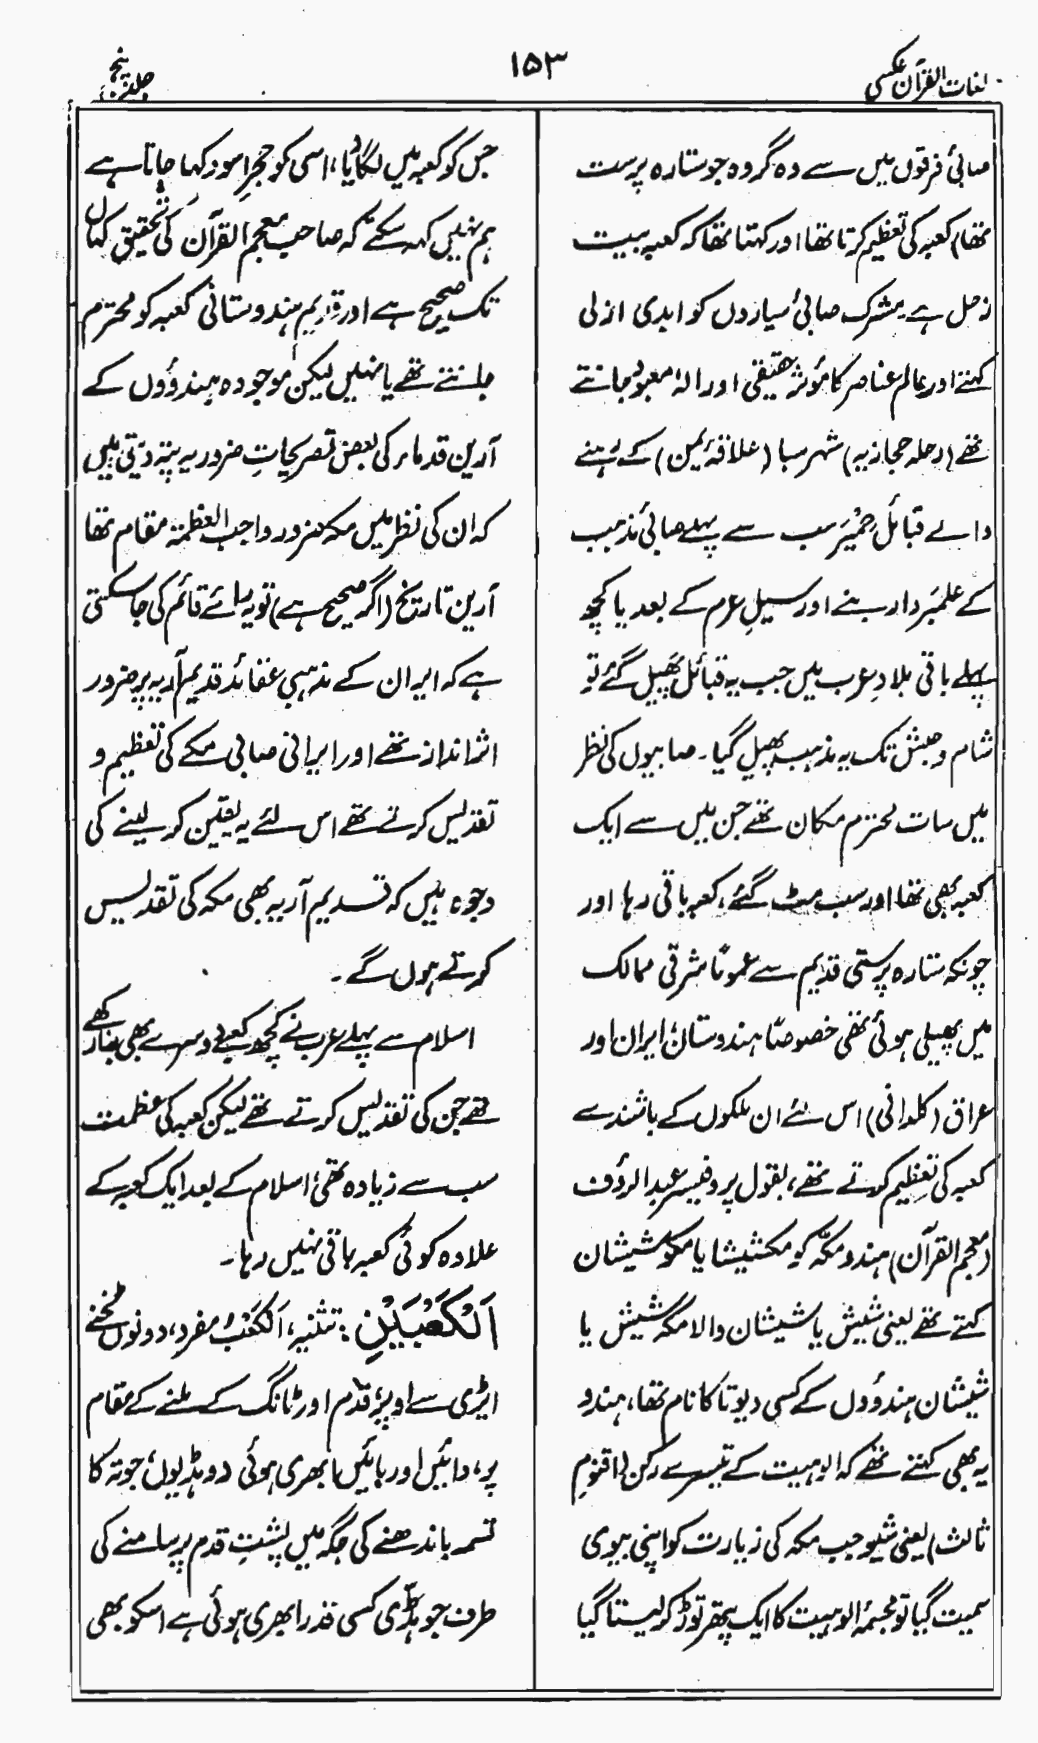 لغات القرآن عکسی
۱۵۳
جلد پنجم
صابئ فرقوں میں سے وہ گروہ جو ستارہ پرست
تھا) کعبہ کی تعظیم کرتا تھا اور کہتا تھا کہ کعبہ بیت
زحل ہے۔ مشرک صابئ سیاروں کو ابدی ازلی
کہتے اور عالم عناصر کا مؤثر حقیقی اور الٰہ معبود جانتے
تھے (رحلہ حجازیہ) شہر سبا (علاقۂ یمن) کے رہنے
والے قبائل حِمْیَر سب سے پہلے صابئ مذہب
کے علمبردار بنے اور سیلِ عرم کے بعد یا کچھ
پہلے باقی بلادِ عرب میں جب یہ قبائل پھیل گئے تو
شام و حبش تک یہ مذہب پھیل گیا۔ صابیوں کی نظر
میں سات محترم مکان تھے جن میں سے ایک
کعبہ بھی تھا اور سب مٹ گئے، کعبہ باقی رہا اور
چونکہ ستارہ پرستی قدیم سے عموماً شرقی ممالک
میں پھیلی ہوئی تھی خصوصاً ہندوستان، ایران اور
عراق (کلدانی) اس لئے ان ملکوں کے باشندے
کعبہ کی تعظیم کرتے تھے، بقول پروفیسر عبدالرؤف
(معجم القرآن) ہندو مکّہ کو مکشیشا یا موکشیشان
کہتے تھے یعنی شیش یا شیشان والا مکہ شیش یا
شیشان ہندوؤں کے کسی دیوتا کا نام تھا، ہندو
یہ بھی کہتے تھے کہ الوہیت کے تیسرے رکن (اقنومِ
ثالث) یعنی شیو جب مکہ کی زیارت کو اپنی بیوی
سمیت گیا تو مجسمۂ الوہیت کا ایک پتھر توڑ کر لیتا گیا
جس کو کعبہ میں لگا دیا، اسی کو حجرِ اسود کہا جاتا ہے
ہم نہیں کہہ سکتے کہ صاحب معجم القرآن کی تحقیق کہاں
تک صحیح ہے اور قدیم ہندوستانی کعبہ کو محترم
جانتے تھے یا نہیں لیکن موجودہ ہندوؤں کے
آرین قدماء کی بعض تصریحات ضرور یہ پتہ دیتی ہیں
کہ ان کی نظر میں مکہ ضرور واجب العظمۃ مقام تھا
آرین تاریخ (اگر صحیح ہے) تو یہ رائے قائم کی جاسکتی
ہے کہ ایران کے مذہبی عقائد قدیم آریہ پر ضرور
اثر انداز تھے اور ایرانی صابی مکے کی تعظیم و
تقدیس کرتے تھے اس لئے یہ یقین کر لینے کی
وجوہ ہیں کہ قدیم آریہ بھی مکہ کی تقدیس
کرتے ہوں گے۔
اسلام سے پہلے عرب نے کچھ کعبے دوسرے بھی بنا رکھے
تھے جن کی تقدیس کرتے تھے لیکن کعبہ کی عظمت
سب سے زیادہ تھی، اسلام کے بعد ایک کعبہ کے
علاوہ کوئی کعبہ باقی نہیں رہا۔
اَلْکَعْبَیْنِ: تثنیہ، اَلْکَعْبُ مفرد، دونوں ٹخنے
ایڑی سے اوپر، قدم اور ٹانگ کے ملنے کے مقام
پر، دائیں اور بائیں ابھری ہوئی دو ہڈیوں، جوتہ کا
تسمہ باندھنے کی جگہ میں پشتِ قدم پر سامنے کی
طرف جو ہڈی کسی قدر ابھری ہوئی ہے اسکو بھی